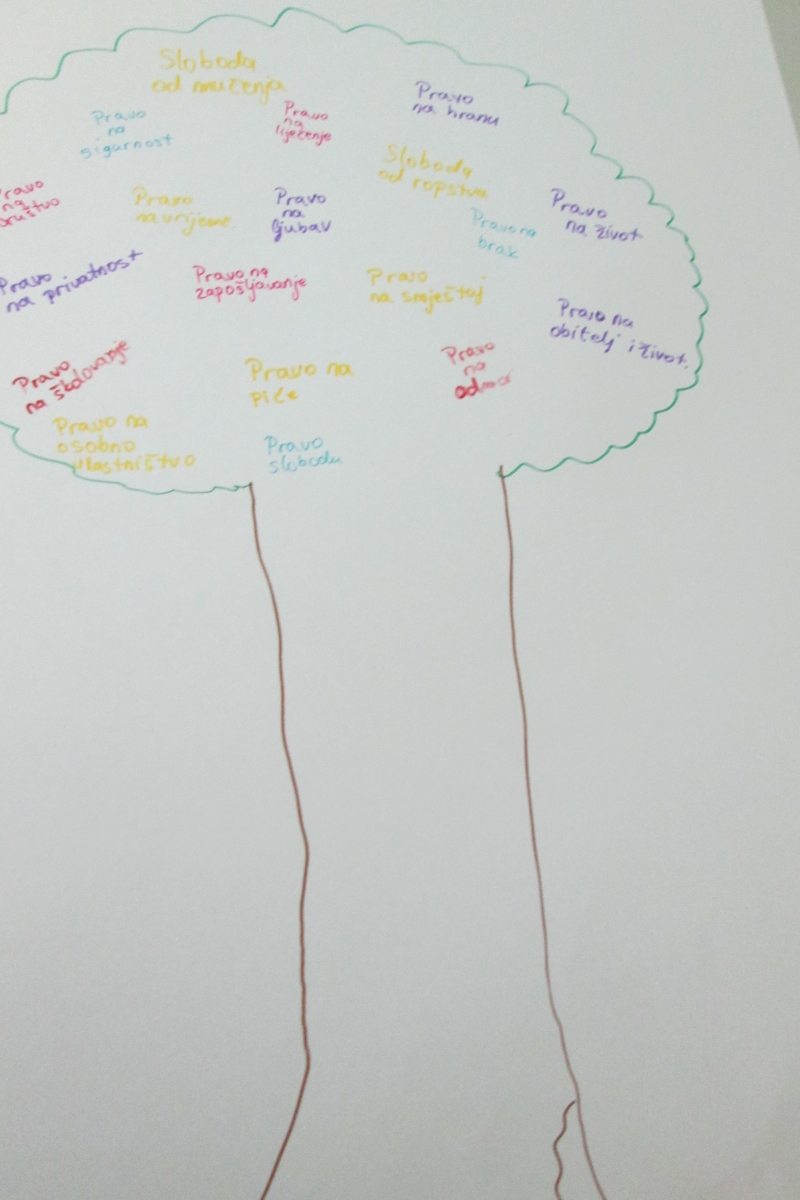 Sloboda
od mučenja
Pravo
na hranu
Pravo
na
sigurnost
Pravo
na
liječenje
Sloboda
od ropstva
Pravo
na
društvo
Pravo
na vrijeme
Pravo
na
ljubav
Pravo na
brak
Pravo
na život
Pravo
na privatnost
Pravo na
zapošljavanje
Pravo
na smještaj
Pravo na
obitelj i život.
Pravo
na školovanje
Pravo na
piće
Pravo
na
odmor
Pravo na
osobno
vlastništvo
Pravo
slobodu